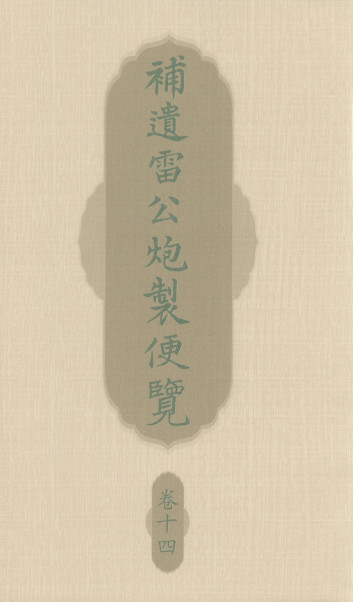 補遺雷公炮製便覽
卷十四